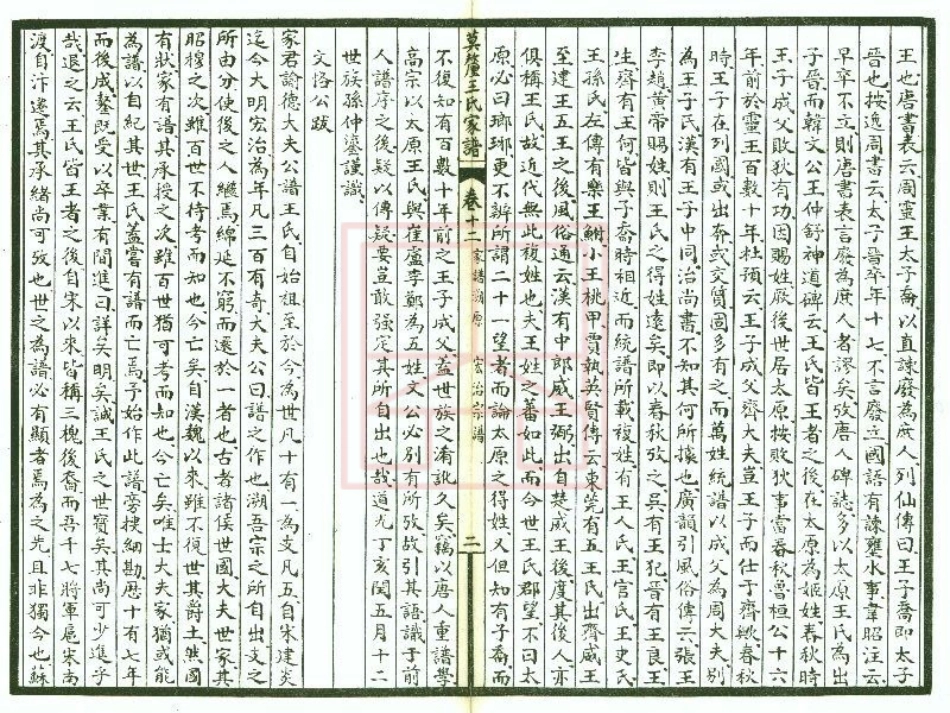 王也唐書表云周靈王太子喬以直諫廢為庶人列仙傳曰王子喬即太子
晉也按逸周書云太子晉卒年十七不言廢立國語有諫壅水事韋昭注云
早卒不立則唐書表言廢為庶人者謬矣攷唐人碑誌多以太原王氏為出
子晉而韓文公王仲舒神道碑云王氏皆王者之後在太原為姬姓春秋時
王子成父敗狄有功因賜姓厥後世居太原按敗狄事當春秋魯桓公十六
年前於靈王百數十年杜預云王子成父齊大夫豈王子而仕于齊歟春秋
時王子在列國或出奔或交質固多有之而萬姓統譜以成父為周大夫別
為王子氏漢有王子中同治尚書不知其何所據也廣韻引風俗傳云張王
李趙黃帝賜姓則王氏之得姓遠矣即以春秋攷之吳有王犯晉有王良王
生齊有王何皆與子喬時相近而統譜所載複姓有王人氏王官氏王史氏
王孫氏左傳有樂王鮒小王桃甲賈執英賢傳云東莞有五王氏出齊威王
至建王五王之後風俗通云漢有中郎威王弼出自楚威王後度其後人亦
俱稱王氏故近代無此複姓也夫王姓之蕃如此而今世王氏郡望不曰太
原必曰瑯琊更不辨所謂二十一望者而論太原之得姓又但知有子喬而
莫釐王氏家譜 卷十二 家譜溯原 宏治宗譜 二
不復知有百數十年前之王子成父蓋世族之淆訛久矣竊以唐人重譜學
高宗以太原王氏與崔盧李鄭為五姓文公必別有所攷故引其語識于前
人譜序之後疑以傳疑要豈敢強定其所自出也哉道光丁亥閏五月十二
世族孫仲鎏謹識
文恪公跋
家君諭德大夫公譜王氏自始祖至於今為世凡十有一為支凡五自宋建炎
迄今大明宏治為年凡三百有奇大夫公曰譜之作也溯吾宗之所自出支之
所由分使後之人繼焉綿延不窮而還於一者也古者諸侯世國大夫世家其
昭穆之次雖百世不待考而知也今亡矣自漢魏以來雖不復世其爵土然國
有狀家有譜其承授之次雖百世猶可考而知也今亡矣唯士大夫家猶或能
為譜以自紀其世王氏蓋嘗有譜而亡焉予始作此譜旁搜細勘歷十有七年
而後成鏊既受以卒業有間進曰詳矣明矣誠王氏之世寶矣其尚可少進乎
哉退之云王氏皆王者之後自宋以來皆稱三槐後裔而吾千七將軍扈宋南
渡自汴遂焉其承緒尚可攷也世之為譜必有顯者焉為之先且非獨今也蘇